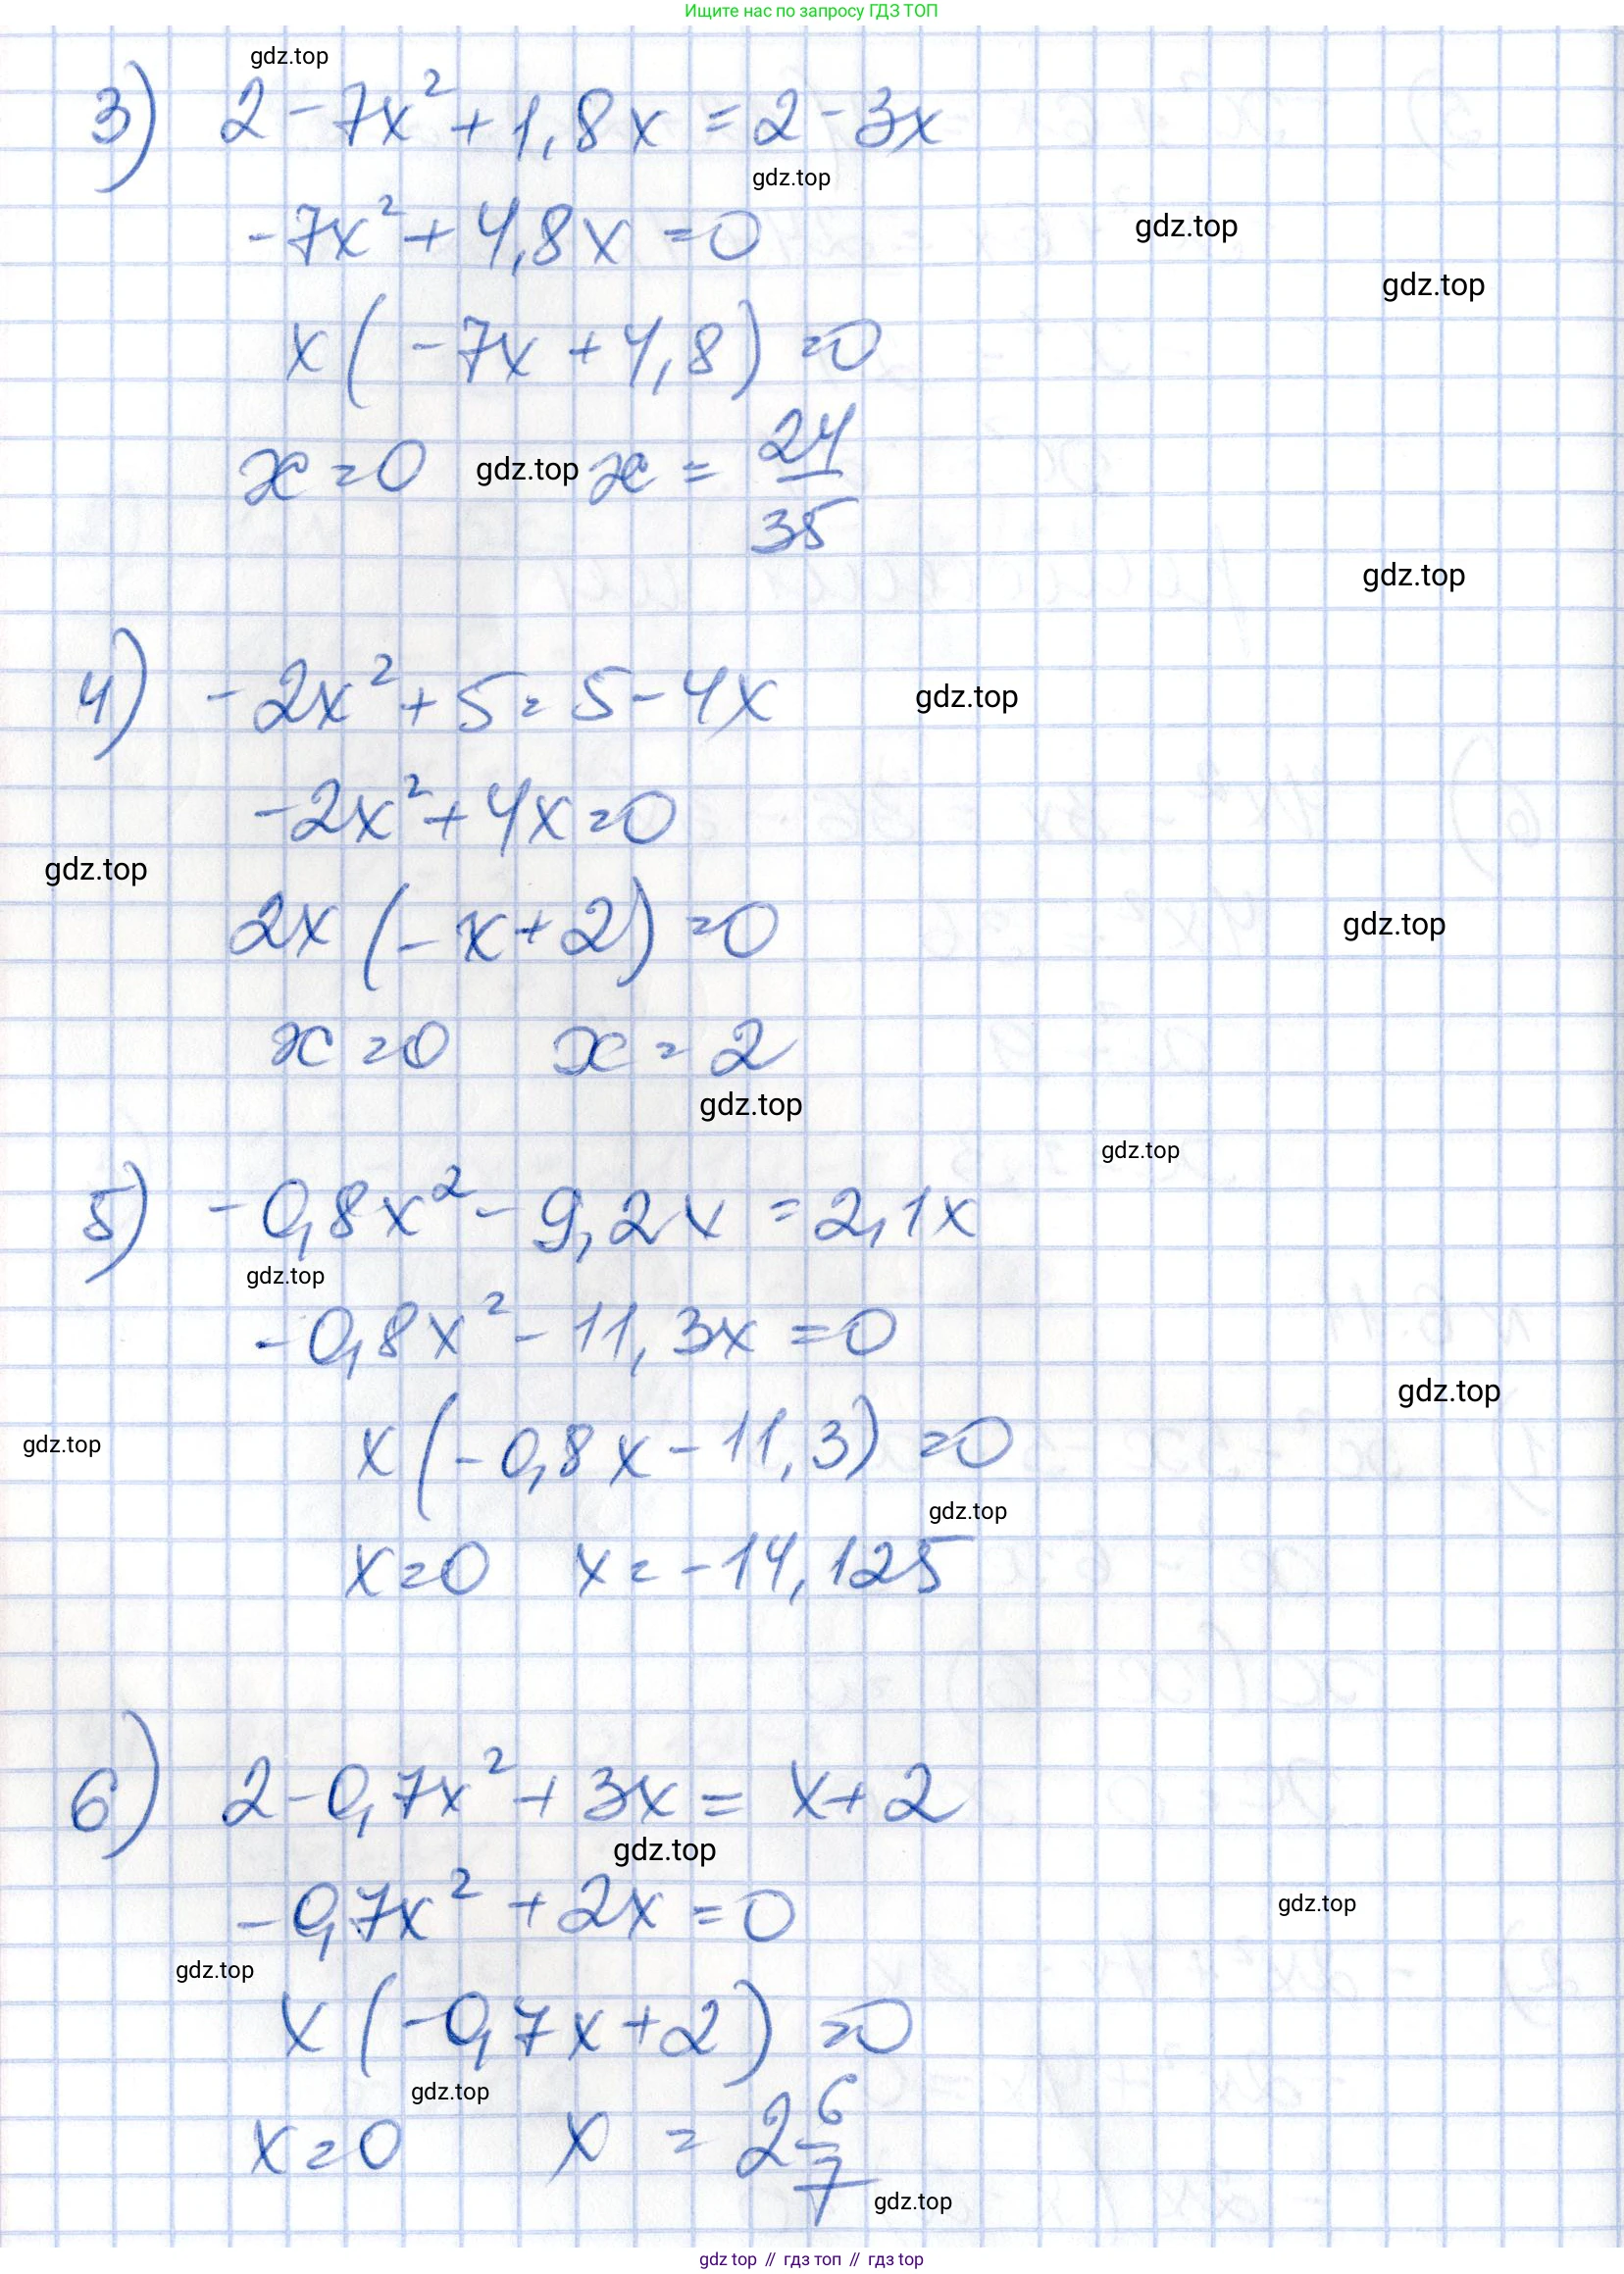 Ищите нас по запросу ГДЗ ТОП
gdz.top
3) 2 - 7x² + 1,8x = 2 - 3x
gdz.top
-7x² + 4,8x = 0
gdz.top
gdz.top
x(-7x + 4,8) = 0
x = 0 gdz.top x = 24/35
gdz.top
4) -2x² + 5 = 5 - 4x
gdz.top
-2x² + 4x = 0
gdz.top
2x(-x + 2) = 0
gdz.top
x = 0 x = 2
gdz.top
gdz.top
5) -0,8x² - 9,2x = 2,1x
gdz.top
-0,8x² - 11,3x = 0
gdz.top
gdz.top
x(-0,8x - 11,3) = 0
gdz.top
x = 0 x = -14,125
6) 2 - 0,7x² + 3x = x + 2
gdz.top
-0,7x² + 2x = 0
gdz.top
gdz.top
x(-0,7x + 2) = 0
gdz.top
x = 0 x = 2 6/7
gdz.top
gdz top // гдз топ // гдз top